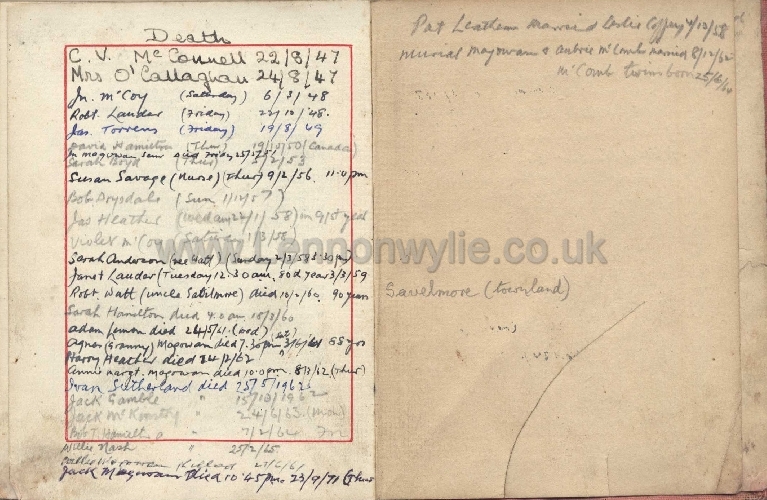 Death
C. V. McConnell 22/8/47
Mrs O'Callaghan 24/8/47
Jn. McCoy (Saturday) 6/3/48
Robt. Lauder (Friday) 22/10/48.
Jas. Torrens (Friday) 19/8/49
David Hamilton (Thur) 19/10/50 (Canada)
Jn magowan senr died Friday
Sarah Boyd (Thur) 5/2/53
Susan Savage (Nurse) (Thur) 9/2/56. 11.0 pm
Bob Drysdale (Sun 1/12/57)
Jas Heather (Weday 22/1/58) in 91st year
Violet McCoy 1/3/58
Sarah Anderson (nee Hatt) (Sunday 2/3/58 3.30 pm)
Janet Lauder (Tuesday 12.30 am. 80d year 3/3/59
Robt. Watt (uncle died 10/2/60. 90 years
Sarah Hamilton died 4.0 am 18/3/60
adam died 24/5/61. (wed)
Agnes (Granny) Magowan died 7.30 pm 3/6/61 (sat) 88 yrs
Harry Heather died 24/2/62
Annie margt. magowan died 10.0 pm. 8/3/62 (Thur)
Ivan Sutherland died 25/5/1962
Jack Gamble " 15/10/1962
Jack " 24/6/63 (mon)
Bob T. Hamilton " 7/2/64
Willie Nash " 25/2/65
Jack Magowan Died 10.45 pm 23/9/71 (Thur
Pat Leathem Married Leslie 4/12/58
Murial Magowan & Aubrie McComb married 8/12/62
McComb twins born 25/6/
Savelmore (townland)
www.Lennonwylie.co.uk